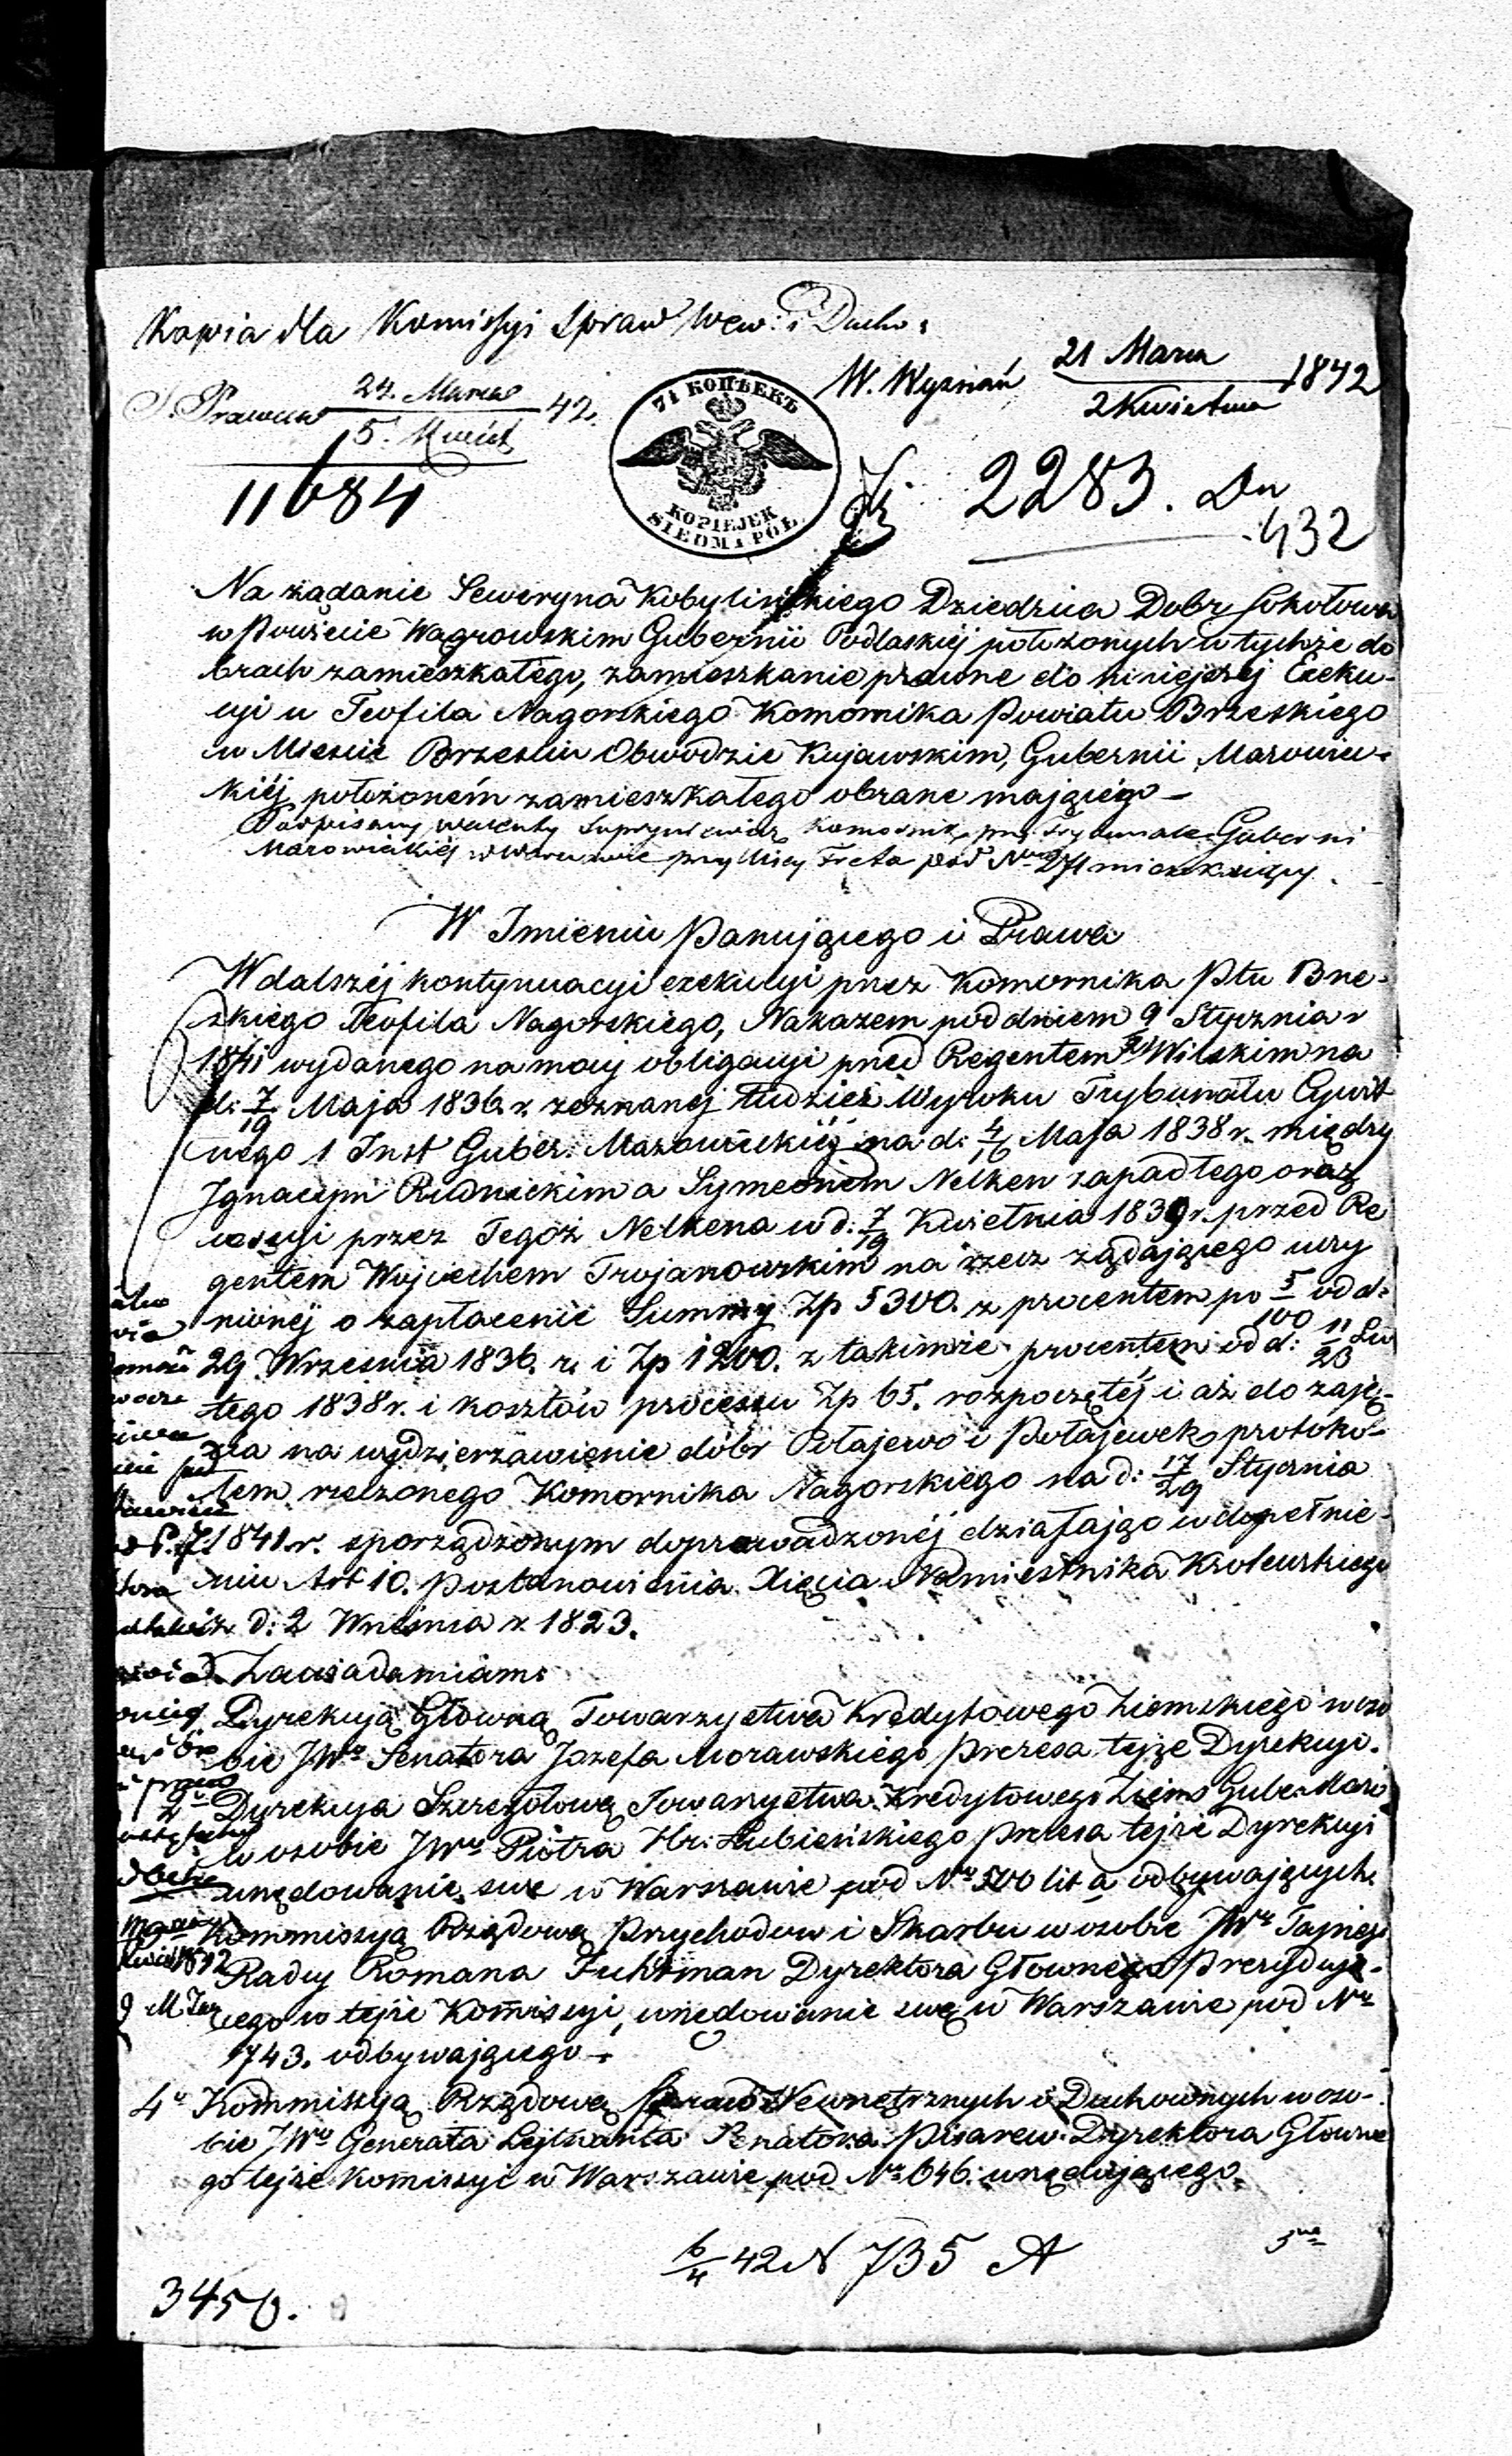 Kopia dla Komissyi Spraw Wew: i Ducho:
W. Wyznań 21 Marca / 2 Kwietnia 1842
Prawna 24. Marca / 5. Kwiet 42.
11684
7½ КОПѢЕКЪ
KOPIEJEK
SIEDM i PÓŁ
2283. Dn
432
Na żądanie Seweryna Kobylińskiego Dziedzica Dobr Sokołowa
w Powiecie Wągrowskim Gubernii Podlaskiéj położonych w tychże do
brach zamieszkałego, zamieszkanie prawne do niniejszéj Exeku-
cyi u Teofila Nagorskiego Komornika Powiatu Brzeskiego
w Miescie Brzesciu Obwodzie Kujawskim, Gubernii Mazowiec-
kiéj położoném zamieszkałego obrane mającego –
Podpisany Walenty Komornik przy Trybunale Gubernii
Mazowieckiéj w Warszawie przy Ulicy Freta pod Nrem 271 mieszkający.
W Imieniu Panującego i Prawa
W dalszéj kontynuacyi exekucyi przez Komornika Ptu Brze-
skiego Teofila Nagorskiego, Nakazem pod dniem 9 Stycznia r
1841 wydanego na mocy obligacyi przed Regentem Wilskim na
d: 7/19 Maja 1836 r. zeznanéj tudzież Wyroku Trybunału Cywil
nego 1 Inst Guber: Mazowieckiéj na d: 4/16 Maja 1838 r. między
Ignacym Rudnickim a Symeonem Nelken zapadłego oraz
cessyi przez Tegoż Nelkena w d: 7/19 Kwietnia 1839 r. przed Re
gentem Wojciechem Trojanowskim na rzecz żądającego uczy
nionéj o zapłacenie Summy Zp 5300. z procentem po 5/100 od d:
29 Września 1836. r. i Zp 1200. z takimże procentem od d: 11/23 Lu
tego 1838 r. i kosztów processu Zp 65. rozpoczętéj i aż do zaję-
cia na wydzierżawienie dóbr Połajewo i Połajewek protoko-
łem rzeczonego Komornika Nagorskiego na d: 17/29 Stycznia
1841 r. sporządzonym doprowadzonéj działając w dopełnie-
niu Art 10. Postanowienia Xięcia Namiestnika Krolewskiego
z d: 2 Wrzesnia r. 1823.
Zawiadamiam:
Dyrekcyą Głowną Towarzystwa Kredytowego Ziemskiego w oso
bie JWo Senatora Jozefa Morawskiego Prezesa tejże Dyrekcyi.
2o Dyrekcyą Szczegołową Towarzystwa Kredytowego Ziems Guber Mazo
w osobie JWo Piotra Hr: Łubieńskiego Prezesa tejże Dyrekcyi
urzędowanie swe w Warszawie pod Nro 500 lit a odbywających
Kommissyą Rządową Przychodow i Skarbu w osobie JWo Tajnego
Radcy Romana Fuhrman Dyrektora Głownego Prezydują-
cego w tejże Kommissyi, urzędowanie swe w Warszawie pod Nro
743. odbywającego –
4o Kommissyą Rządową Spraw Wewnętrznych i Duchownych w oso-
bie JWo Generała Lejtnanta Senatora Pisarew Dyrektora Głowne
go tejże Kommissyi w Warszawie pod Nro 646. urzędującego.
6/4 42 N 735 A
3450.